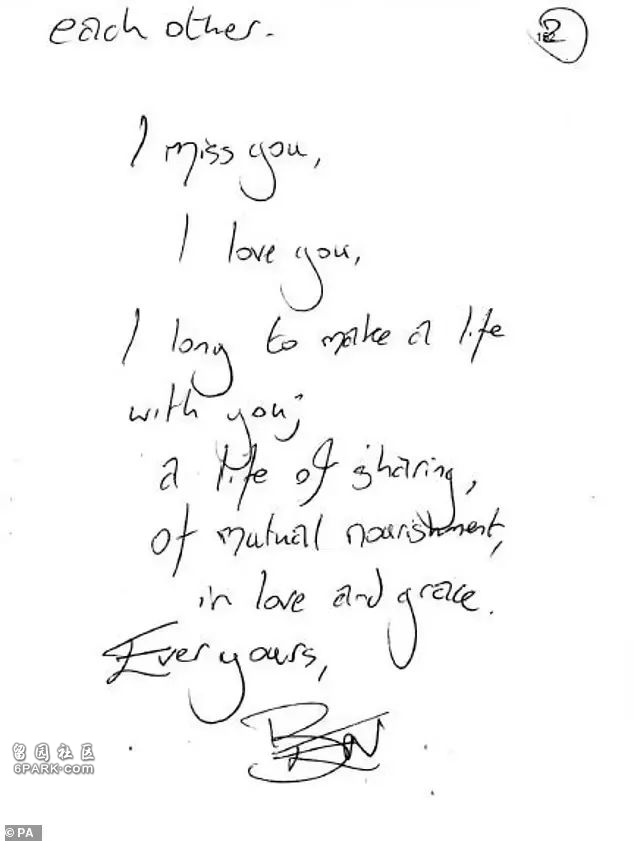 each other.
2
182
I miss you,
I love you,
I long to make a life
with you;
a life of sharing,
of mutual nourishment,
in love and grace.
Ever yours,
留园社区
6PARK.com
© PA